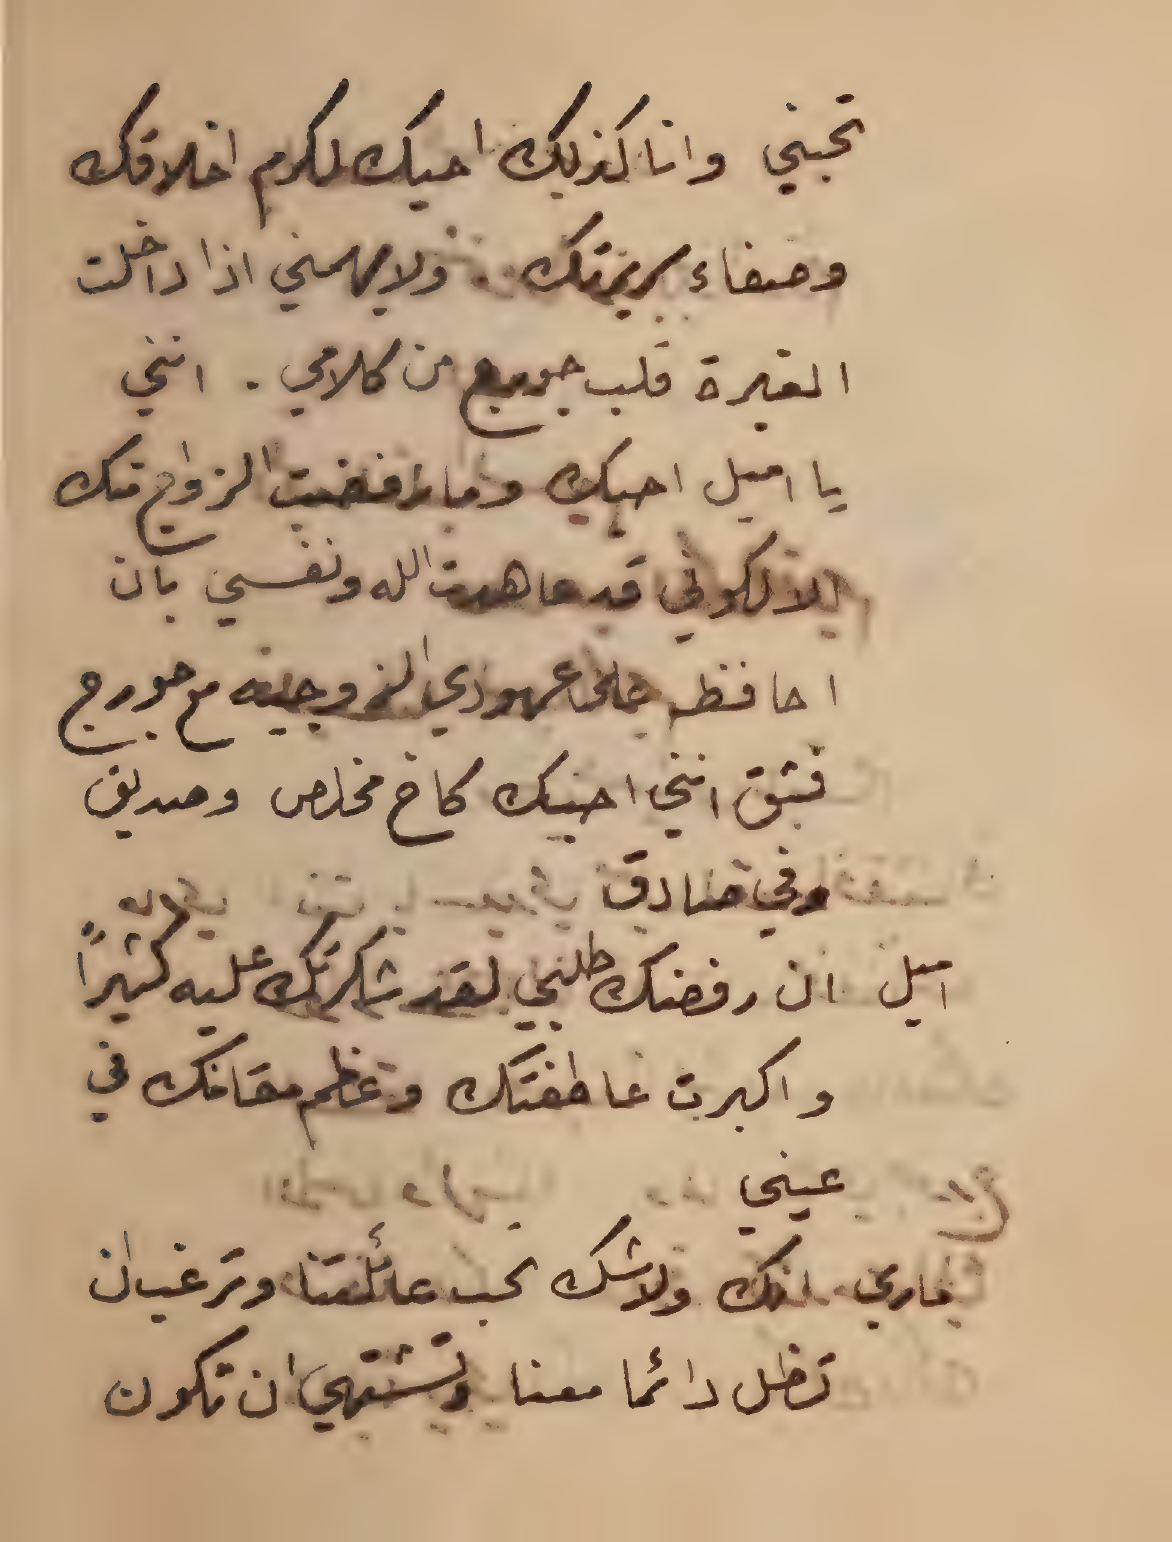 تحبني وانا كذلك احبك لكرم اخلاقك
وصفاء سريرتك ولا يهمني اذا داخلت
الغيرة قلب جورج من كلامي . انني
يا اميل احبك وما رفضت الزواج منك
الا لكوني قد عاهدت الله ونفسي بان
احافظ على عهودي الزوجيه مع جورج
فثق انني احبك كاخ مخلص وصديق
وفي صادق
اميل ان رفضك طلبي لقد شكرتك عليه كثيراً
واكبرت عاطفتك وعظم مقامك في
عيني
ماري انك ولاشك تحب عائلتنا وترغب ان
تظل دائما معنا وتشتهي ان تكون